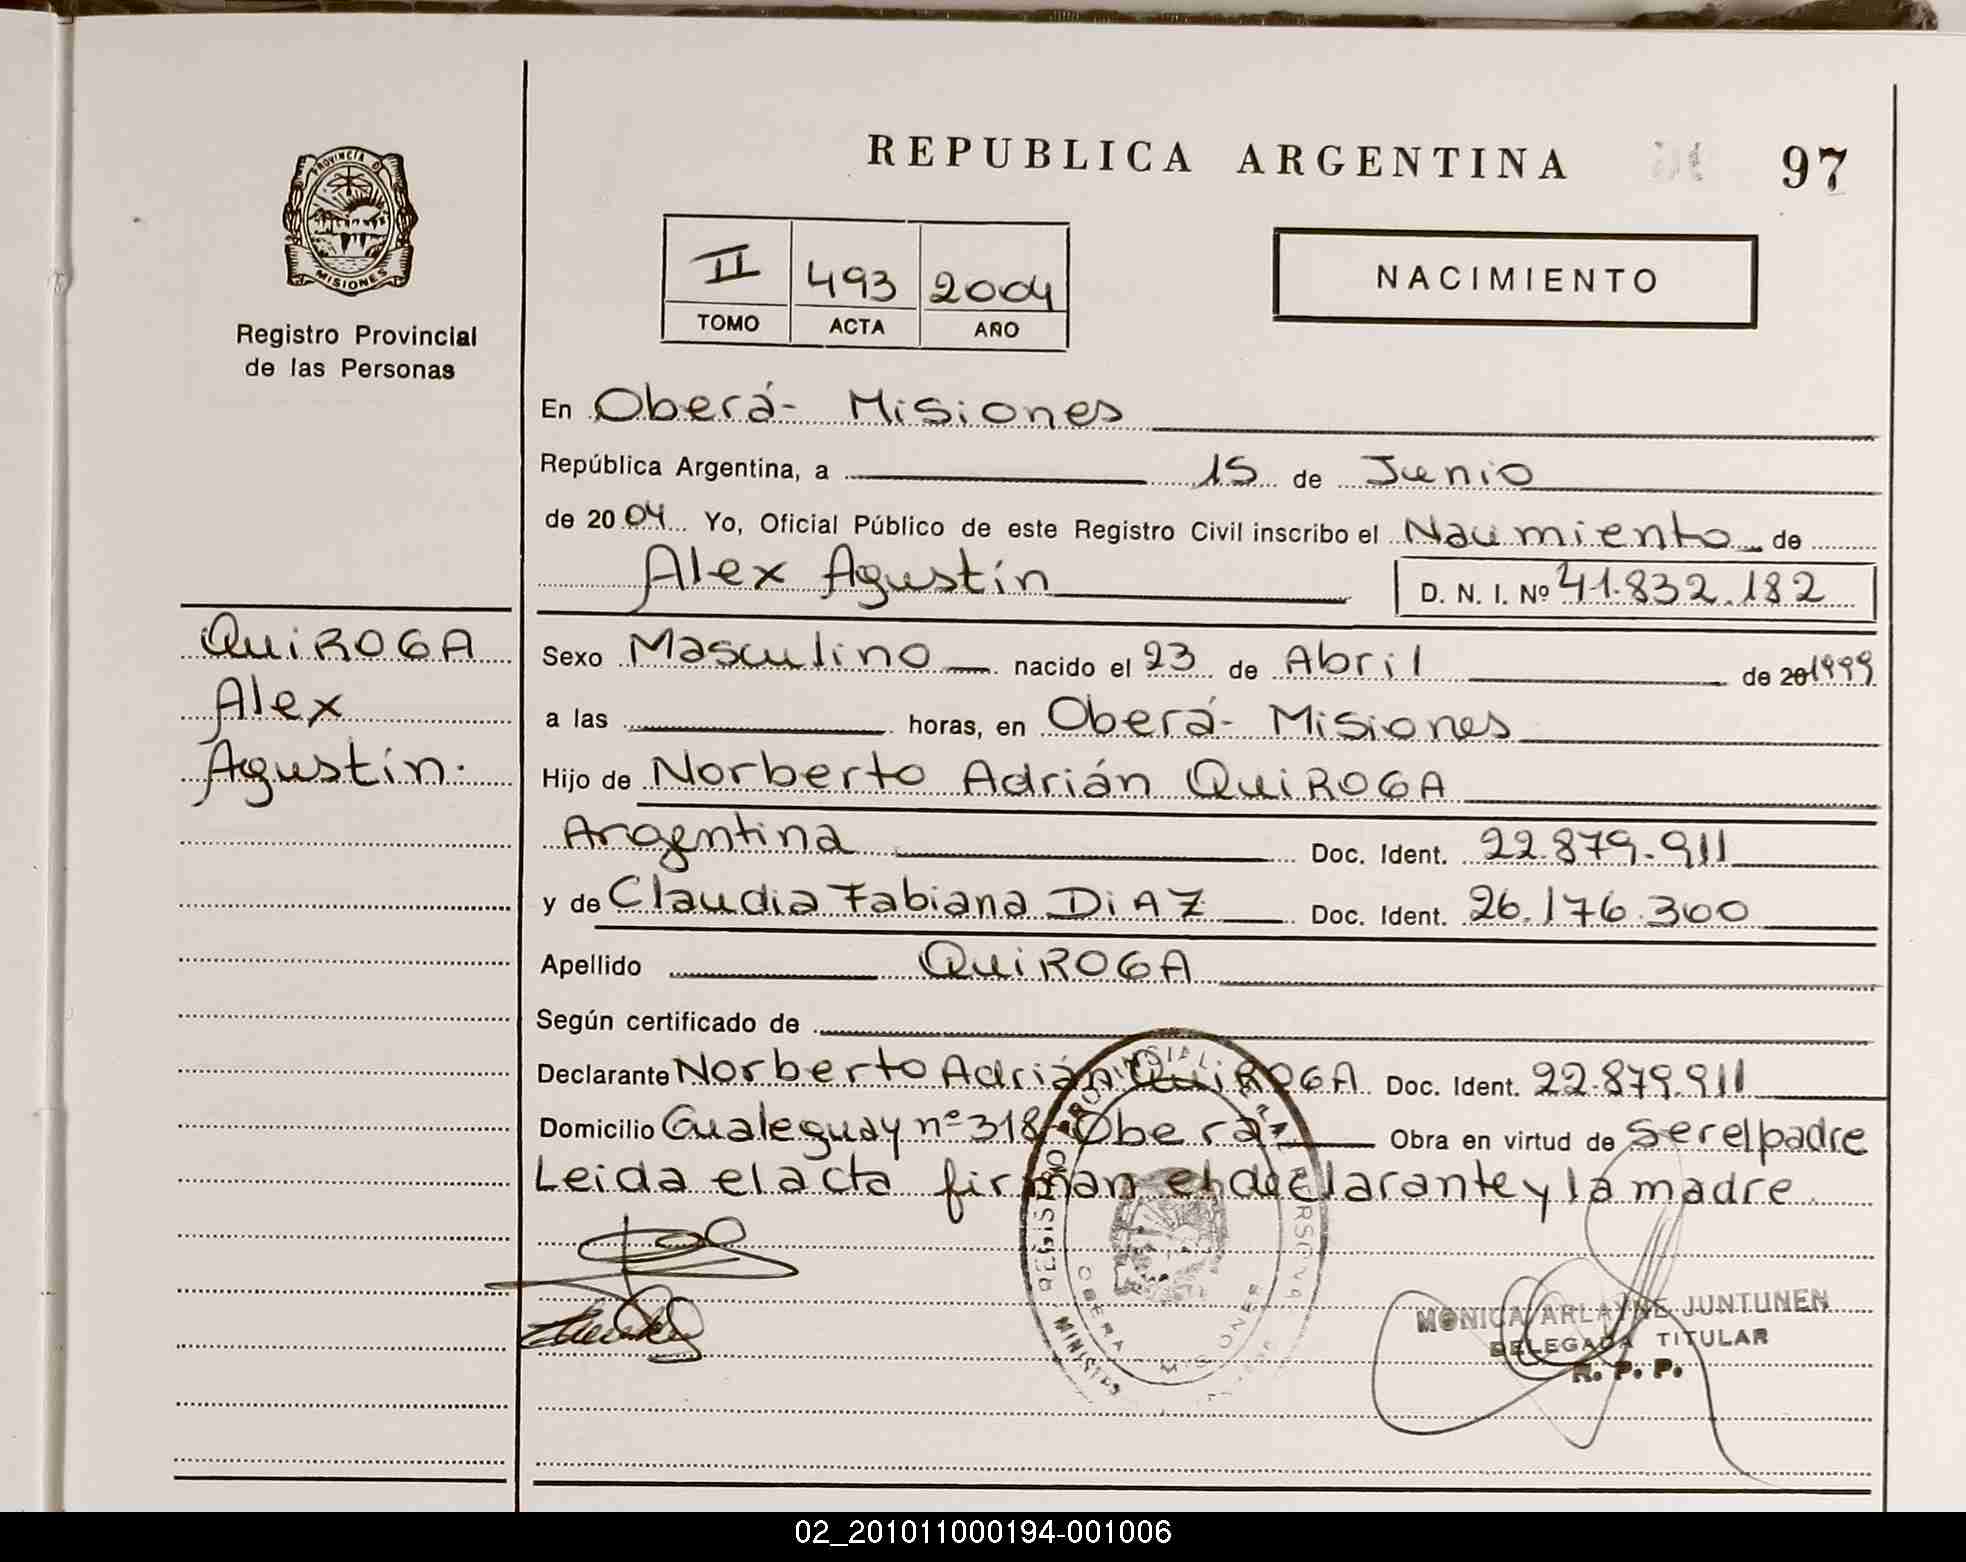 REPUBLICA ARGENTINA 97
PROVINCIA D
MISIONES
Registro Provincial
de las Personas
II 493 2004
TOMO ACTA AÑO
NACIMIENTO
En Oberá- Misiones
República Argentina, a 15 de Junio
de 2004 Yo, Oficial Público de este Registro Civil inscribo el Nacimiento de
Alex Agustín D. N. I. Nº 41.832.182
QUIROGA
Alex
Agustín.
Sexo Masculino nacido el 23 de Abril de 20 1999
a las horas, en Oberá- Misiones
Hijo de Norberto Adrián QUIROGA
Argentina Doc. Ident. 22.879.911
y de Claudia Fabiana DIAZ Doc. Ident. 26.176.300
Apellido QUIROGA
Según certificado de
Declarante Norberto Adrián QUIROGA Doc. Ident. 22.879.911
Domicilio Gualeguay nº 318- Oberá- Obra en virtud de ser el padre
Leida el acta firman el declarante y la madre
OBERA MISIONES
MONICA ARLAYNE JUNTUNEN
DELEGADA TITULAR
R. P. P.
02_201011000194-001006